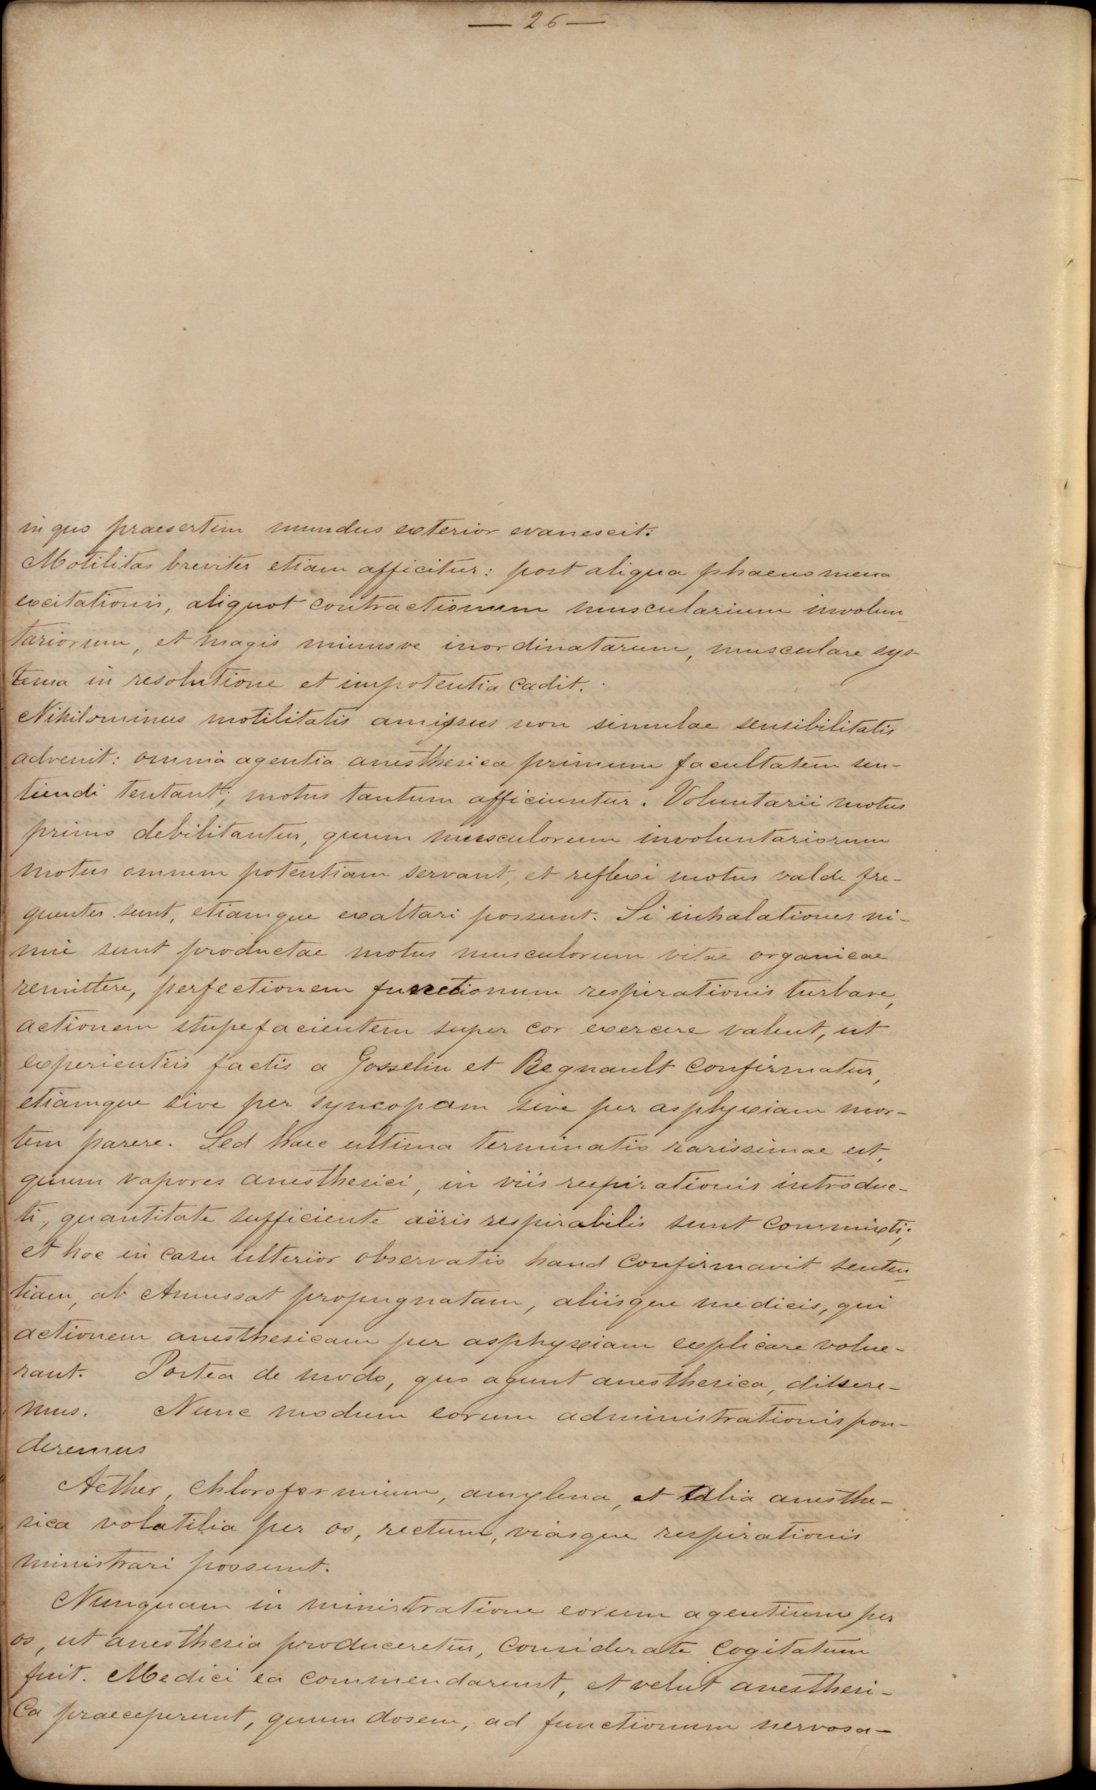 — 26 —
in quo praesertim mundus exterior evanescit.
Motilitas breviter etiam afficitur: post aliqua phaenomena
excitationis, aliquot contractionum muscularium involun-
tariorum, et magis minusve inordinatarum, musculare sys-
tema in resolutione et impotentia cadit.
Nihilominus motilitatis amissus non simulae sensibilitatis
advenit: omnia agentia anesthesica primum facultatem sen-
tiendi tentant; motus tantum afficiuntur. Voluntarii motus
primo debilitantur, quum musculorum involuntariorum
motus omnem potentiam servant, et reflexi motus valde fre-
quentes sunt, etiamque exaltari possunt. Si inhalationes ni-
mie sunt productae motus musculorum vitae organicae
remittere, perfectionem functionum respirationis turbare,
actionem stupefacientem super cor exercere valent, ut
experientiis factis a Gosselin et Regnault confirmatur,
etiamque sive per syncopam sive per asphyxiam mor-
tem parere. Sed haec ultima terminatio rarissimae est,
quum vapores anesthesici, in viis respirationis introduc-
ti, quantitate sufficiente aëris respirabilis sunt commixti;
et hoc in casu ulterior observatio haud confirmavit senten-
tiam, ab Amussat propugnatam, aliisque medicis, qui
actionem anesthesicam per asphyxiam explicare volue-
rant. Postea de modo, quo agunt anesthesica, dissere-
mus. Nunc modum eorum administrationis pon-
deremus
Aether, chloroformium, amylena, et talia anesthe-
sica volatilia per os, rectum, viasque respirationis
ministrari possunt.
Nunquam in ministratione eorum agentium per
os, ut anesthesia produceretur, considerate cogitatum
fuit. Medici ea commendarunt, et velut anesthesi-
ca praeceperunt, quum dosem, ad functionum nervosa-